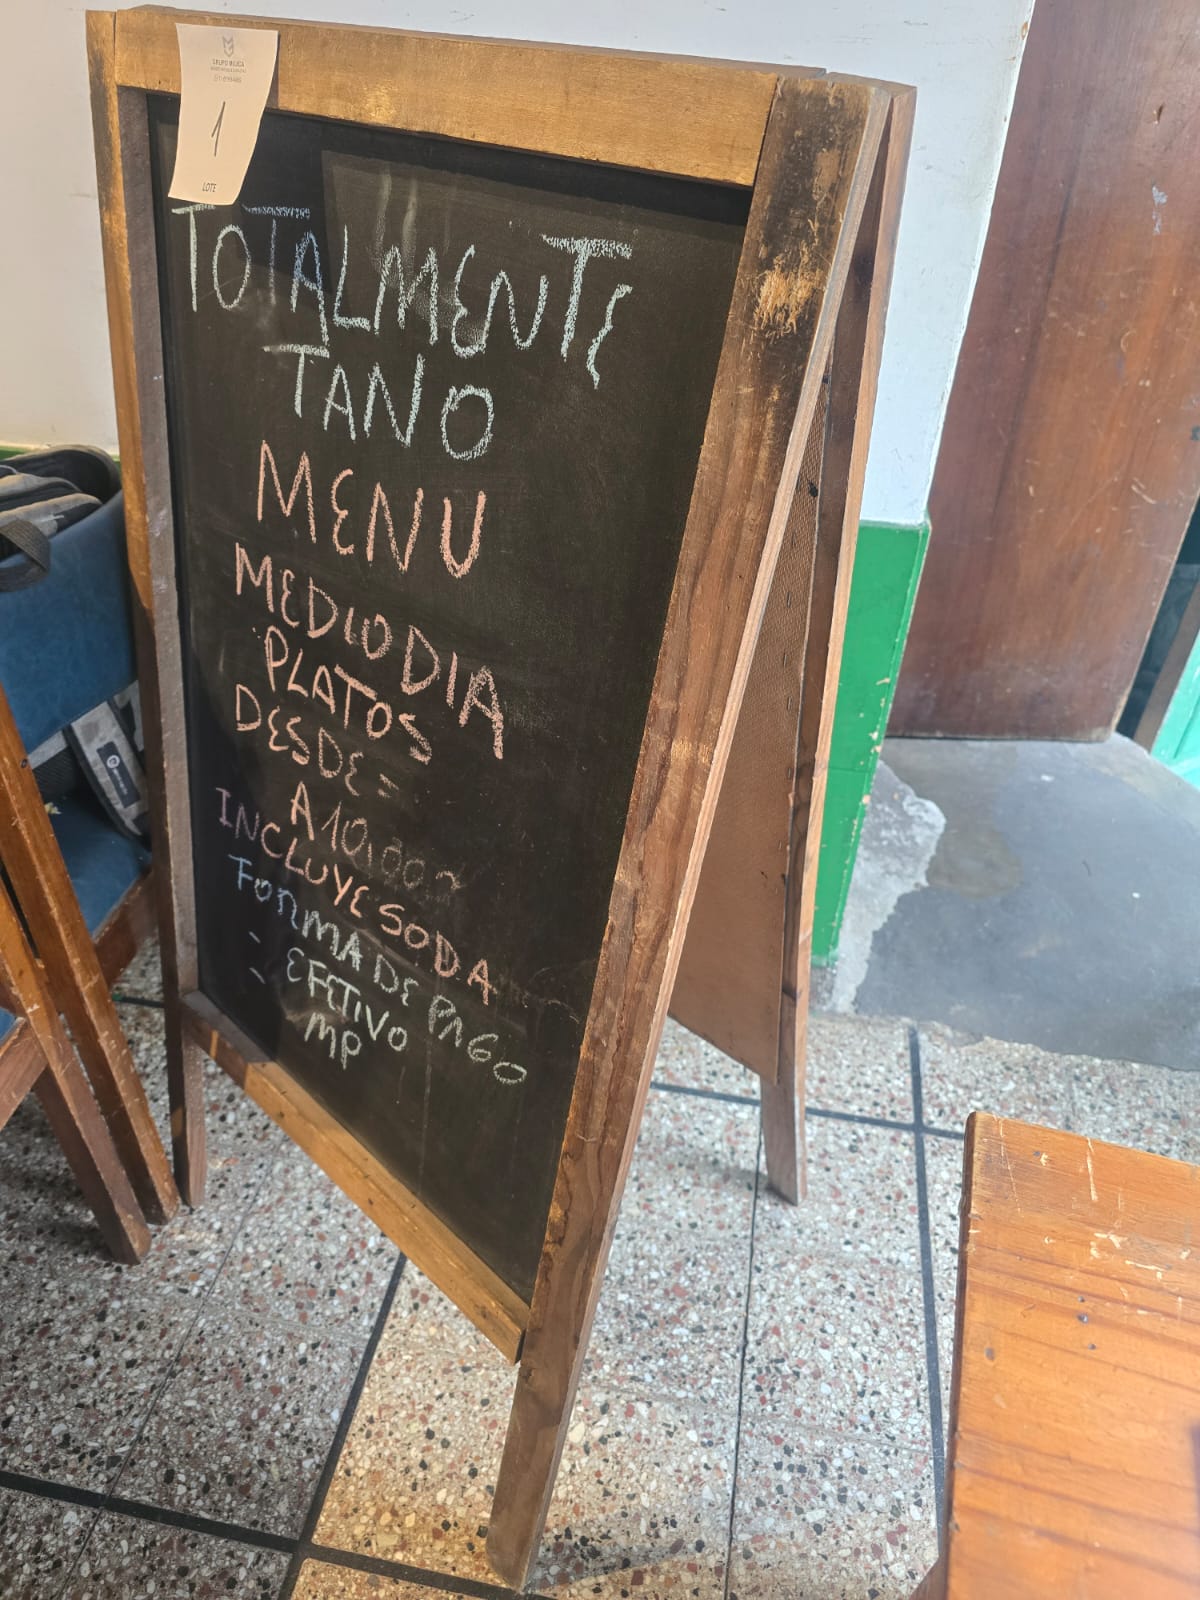 GRUPO MUJICA
1
LOTE
TOTALMENTE
TANO
MENU
MEDIODIA
PLATOS
DESDE =
A 10.000
INCLUYE SODA
FORMA DE PAGO
- EFCTIVO
- MP